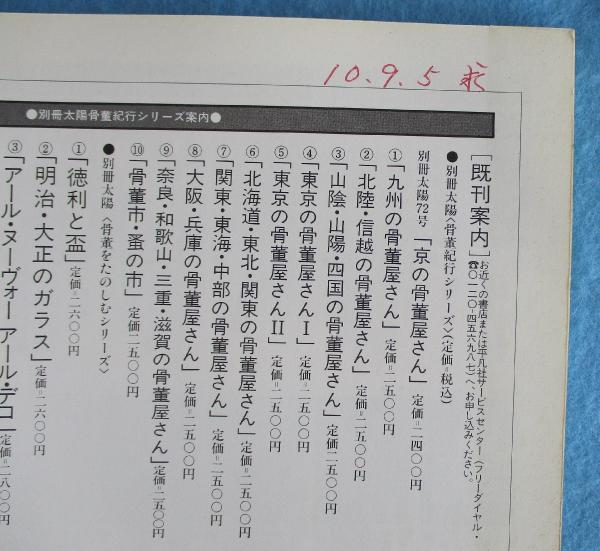 10.9.5
●別冊太陽骨董紀行シリーズ案内●
[既刊案内]お近くの書店または平凡社サービスセンター(フリーダイヤル・
☎〇一二〇-四五六九八七)へ、お申し込みください。
●別冊太陽〈骨董紀行シリーズ〉(定価=税込)
別冊太陽72号「京の骨董屋さん」定価=二四〇〇円
①「九州の骨董屋さん」定価=二五〇〇円
②「北陸・信越の骨董屋さん」定価=二五〇〇円
③「山陰・山陽・四国の骨董屋さん」定価=二五〇〇円
④「東京の骨董屋さんⅠ」定価=二五〇〇円
⑤「東京の骨董屋さんⅡ」定価=二五〇〇円
⑥「北海道・東北・関東の骨董屋さん」定価=二五〇〇円
⑦「関東・東海・中部の骨董屋さん」定価=二五〇〇円
⑧「大阪・兵庫の骨董屋さん」定価=二五〇〇円
⑨「奈良・和歌山・三重・滋賀の骨董屋さん」定価=二五〇〇円
⑩「骨董市・蚤の市」定価二五〇〇円
●別冊太陽〈骨董をたのしむシリーズ〉
①「徳利と盃」定価=二六〇〇円
②「明治・大正のガラス」定価=二六〇〇円
③「アール・ヌーヴォー アール・デコ」定価=二八〇〇円